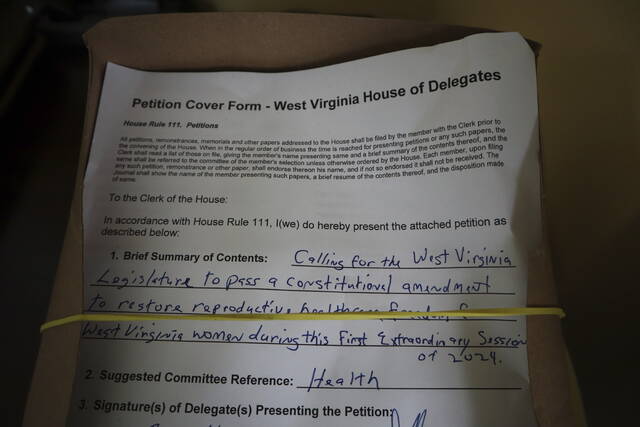 Petition Cover Form - West Virginia House of Delegates
House Rule 111. Petitions
All petitions, remonstrances, memorials and other papers addressed to the House shall be filed by the member with the Clerk prior to
the convening of the House. When in the regular order of business the time is reached for presenting petitions or any such papers, the
Clerk shall read a list of those on file, giving the member's name presenting same and a brief summary of the contents thereof, and the
same shall be referred to the committee of the member's selection unless otherwise ordered by the House. Each member, upon filing
any such petition, remonstrance or other paper, shall endorse thereon his name, and if not so endorsed it shall not be received. The
Journal shall show the name of the member presenting such papers, a brief resume of the contents thereof, and the disposition made
of same.
To the Clerk of the House:
In accordance with House Rule 111, I(we) do hereby present the attached petition as
described below:
1. Brief Summary of Contents: Calling for the West Virginia
Legislature to pass a constitutional amendment
to restore reproductive healthcare
West Virginia women during this First Extraordinary Session
of 2024.
2. Suggested Committee Reference: Health
3. Signature(s) of Delegate(s) Presenting the Petition: